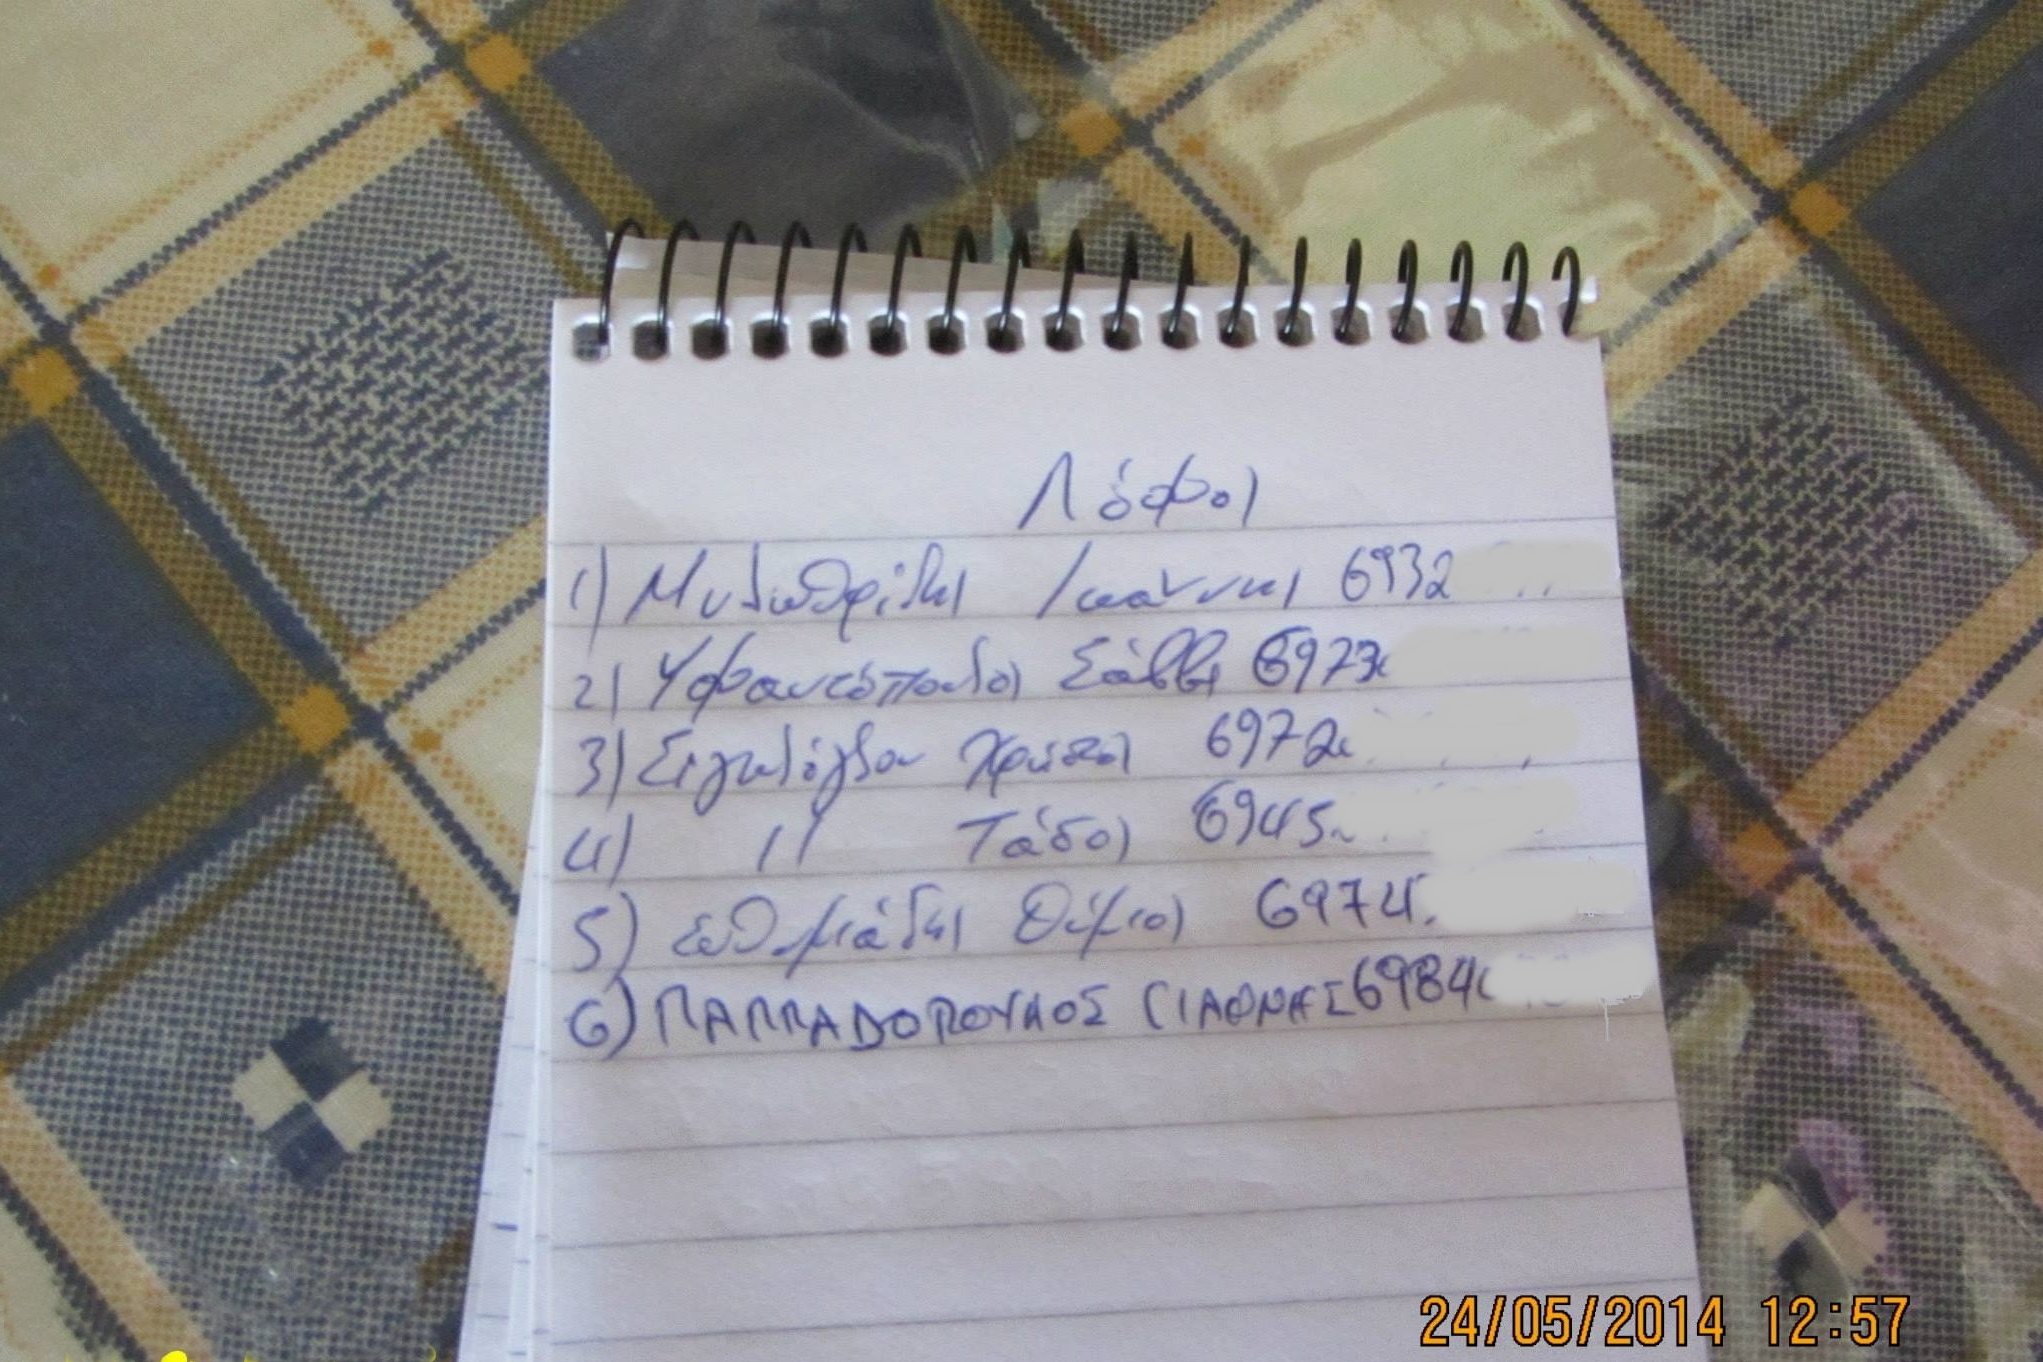 Λόφοι
1) Ιωάννης 6932
2) Υφαντόπουλος Σάββας 6973
3) Χρήστος 6972
4) 〃 Τάσος 6945
5) Ευθυμιάδης Θύμιος 6974
6) ΠΑΠΠΑΔΟΠΟΥΛΟΣ 6984
24/05/2014 12:57